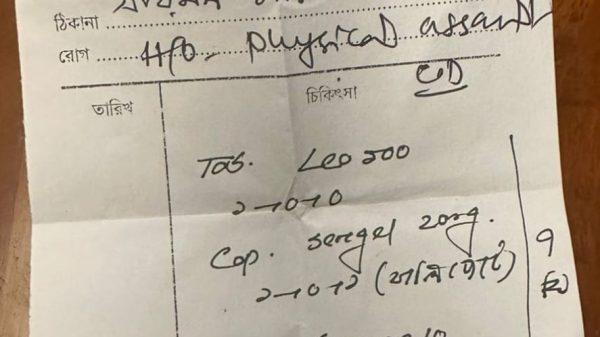 ঠিকানা
রোগ H/O- Physical assault
তারিখ
চিকিৎসা
Tab. Leo 500
১+০+০
Cap. Sergel 20mg.
১+০+১ (খালিপেটে)
৭
দিন